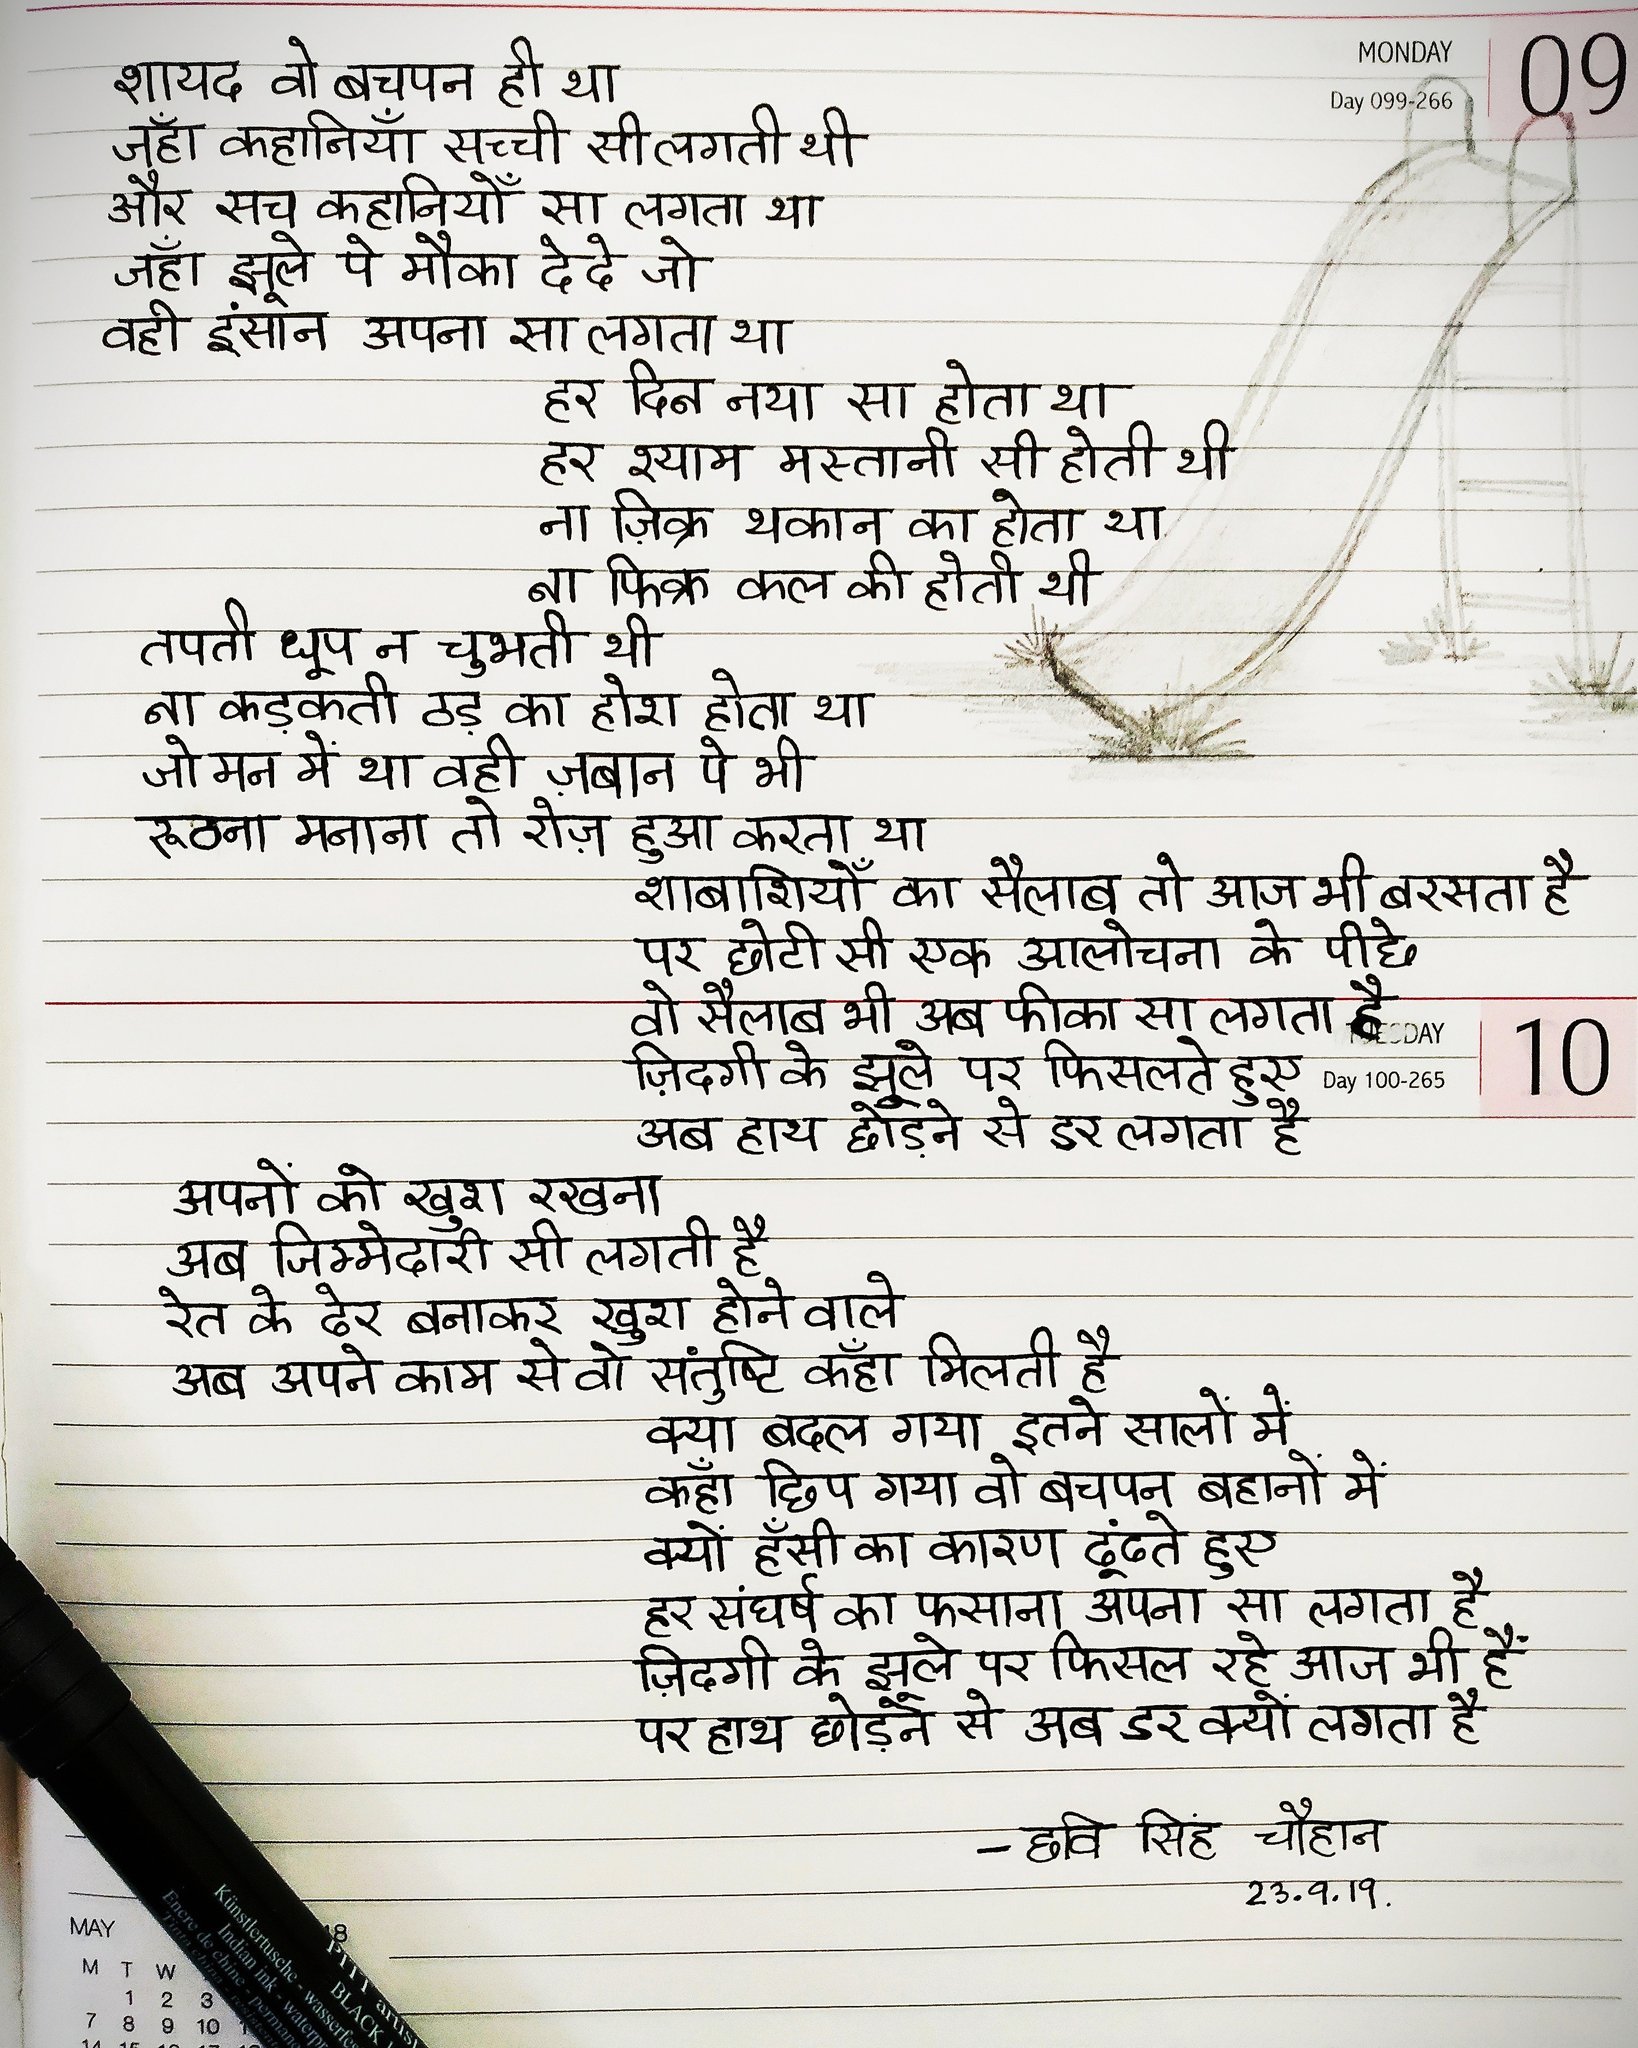 MONDAY
09
Day 099-266
शायद वो बचपन ही था
जहाँ कहानियाँ सच्ची सी लगती थी
और सच कहानियोँ सा लगता था
जहाँ झूले पे मौका देदे जो
वही इंसान अपना सा लगता था
हर दिन नया सा होता था
हर श्याम मस्तानी सी होती थी
ना ज़िक्र थकान का होता था
ना फिक्र कल की होती थी
तपती धूप न चुभती थी
ना कड़कती ठड़ का होश होता था
जो मन में था वही ज़बान पे भी
रूठना मनाना तो रोज़ हुआ करता था
शाबाशियोँ का सैलाब तो आज भी बरसता है
पर छोटी सी एक आलोचना के पीछे
वो सैलाब भी अब फीका सा लगता है
TUESDAY
10
ज़िदगी के झूले पर फिसलते हुए
Day 100-265
अब हाथ छोड़ने से डर लगता है
अपनों को खुश रखना
अब जिम्मेदारी सी लगती है
रेत के ढेर बनाकर खुश होने वाले
अब अपने काम से वो संतुष्टि कहाँ मिलती है
क्या बदल गया इतने सालों में
कहाँ छिप गया वो बचपन बहानों में
क्यों हँसी का कारण ढूंढते हुए
हर संघर्ष का फसाना अपना सा लगता है
ज़िदगी के झूले पर फिसल रहे आज भी हैं
पर हाथ छोड़ने से अब डर क्यों लगता है
- छवि सिंह चौहान
23.9.19.
MAY
M T W
1 2 3
7 8 9 10
14 15 16 17
Künstlertusche - wasserfe
Indian ink - waterp
Encre de chine - perman
BLACK